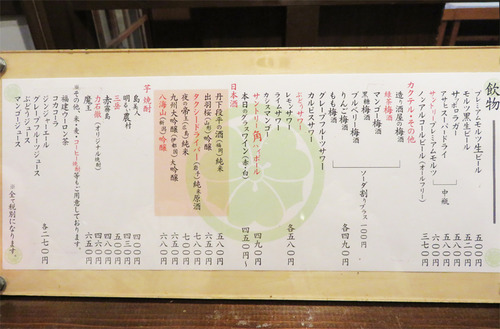 飲物
プレミアムモルツ生ビール 五五〇円
モルツ黒生ビール 五五〇円
サッポロラガー
アサヒスーパードライ
サントリープレミアムモルツ 中瓶 六二〇円
ノンアルコールビール(オールフリー) 三七〇円
カクテル・その他
造り酒屋の梅酒
緑茶梅酒
マンゴー梅酒
黒糖梅酒
ブルーベリー梅酒
りんご梅酒
もも梅酒
ソーダ割りプラス 一〇〇円
各四九〇円
グレープフルーツサワー
カルピスサワー
ぶどうサワー
レモンサワー
ライムサワー
カシスマンゴー
各五八〇円
サントリー角ハイボール 四九〇円
本日のグラスワイン(赤・白) 四五〇円〜
日本酒
丹下段平の酒 純米 五八〇円
出羽桜(山形) 吟醸
タクシードライバー(岩手) 純米原酒 七八〇円
夜の帝王(広島) 純米
九州大吟醸 大吟醸
八海山(新潟) 吟醸 六八〇円
芋焼酎
島美人 四〇〇円
明るい農村 四三〇円
三岳 五〇〇円
赤霧島 五八〇円
力石徹(オリジナル焼酎) 四六〇円
魔王 六五〇円
その他、米・麦・コーヒー焼酎等もご用意しております。
福建ウーロン茶
コカコーラ
ジンジャーエール
グレープフルーツジュース
ぶどうジュース
マンゴージュース
各二七〇円
※全て税別になります。